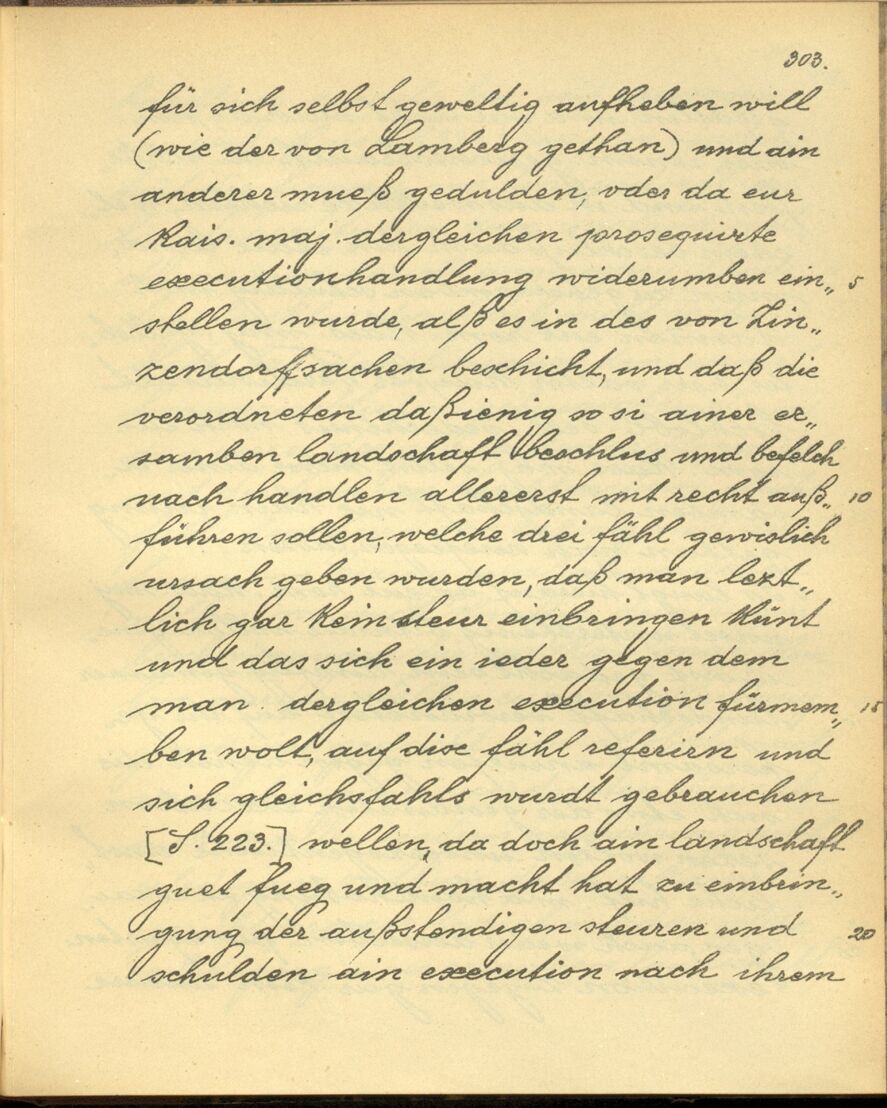 303.
für sich selbst geweltig aufheben will
(wie der von Lamberg gethan) und ain
anderer mueß gedulden, oder da eur
Kais. maj. dergleichen prosequirte
executionhandlung widerumben ein„ 5
stellen wurde, alß es in des von Zin„
zendorf sachen beschicht, und daß die
verordneten daßienig so si ainer er„
samben landschaft beschlus und befelch
nach handlen allererst mit recht auß„ 10
führen sollen, welche drei fähl gewislich
ursach geben wurden, daß man lezt„
lich gar kein steur einbringen künt
und das sich ein ieder gegen dem
man dergleichen execution fürmem„ 15
ben wolt, auf dise fähl referirn und
sich gleichsfahls wurdt gebrauchen
[S. 223.] wellen, da doch ain landschaft
guet fueg und macht hat zu einbrin„
gung der außstendigen steuren und 20
schulden ain execution nach ihrem